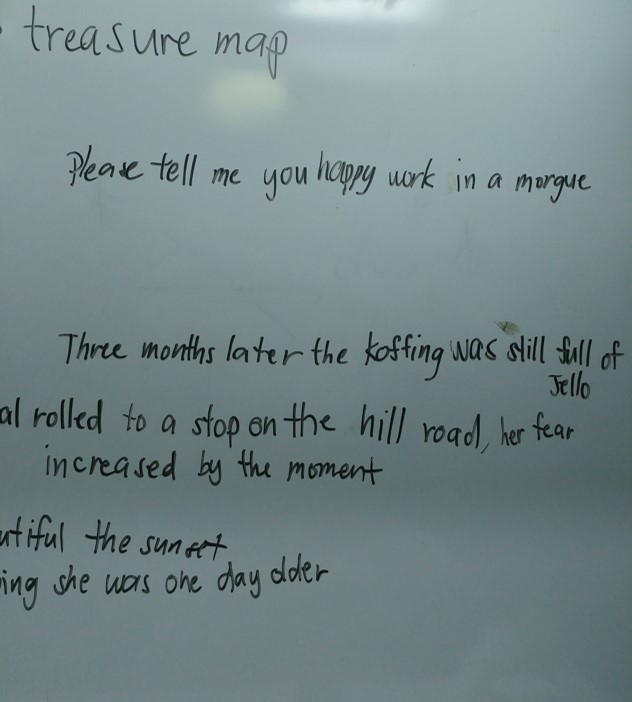 treasure map
Please tell me you happy work in a morgue
Three months later the koffing was still full of
Jello
al rolled to a stop on the hill road, her fear
increased by the moment
utiful the sunset
ing she was one day older